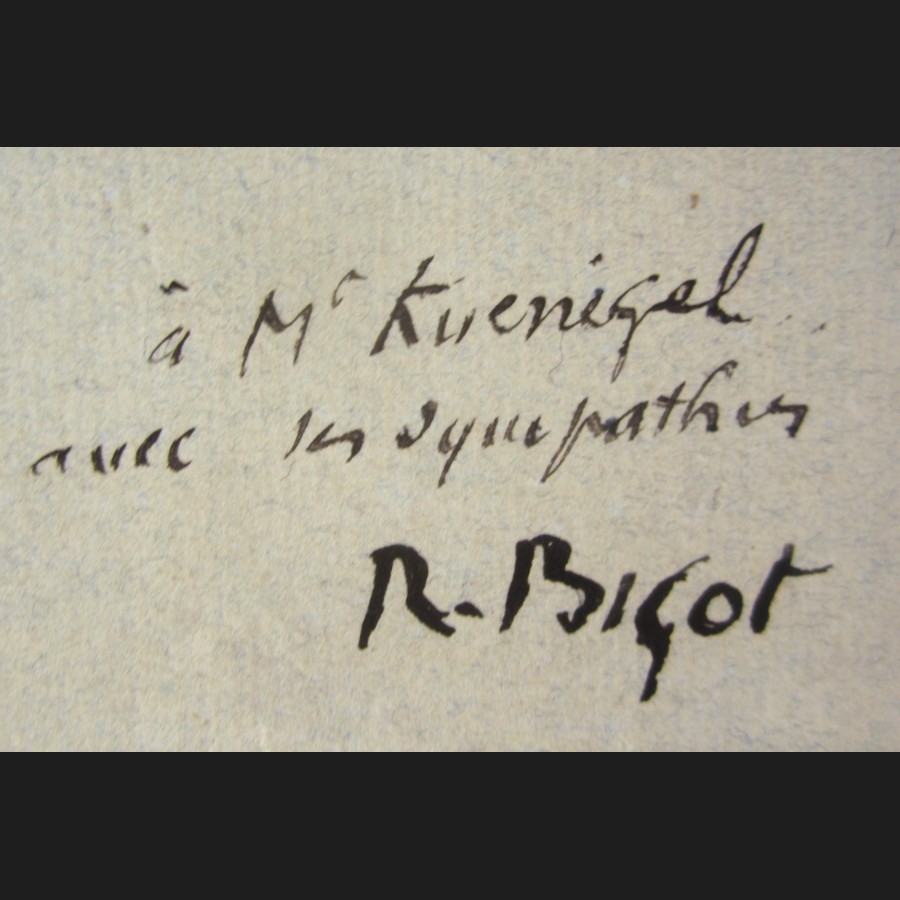 à Mr Kuenegel
avec les sympathies
R. Bigot